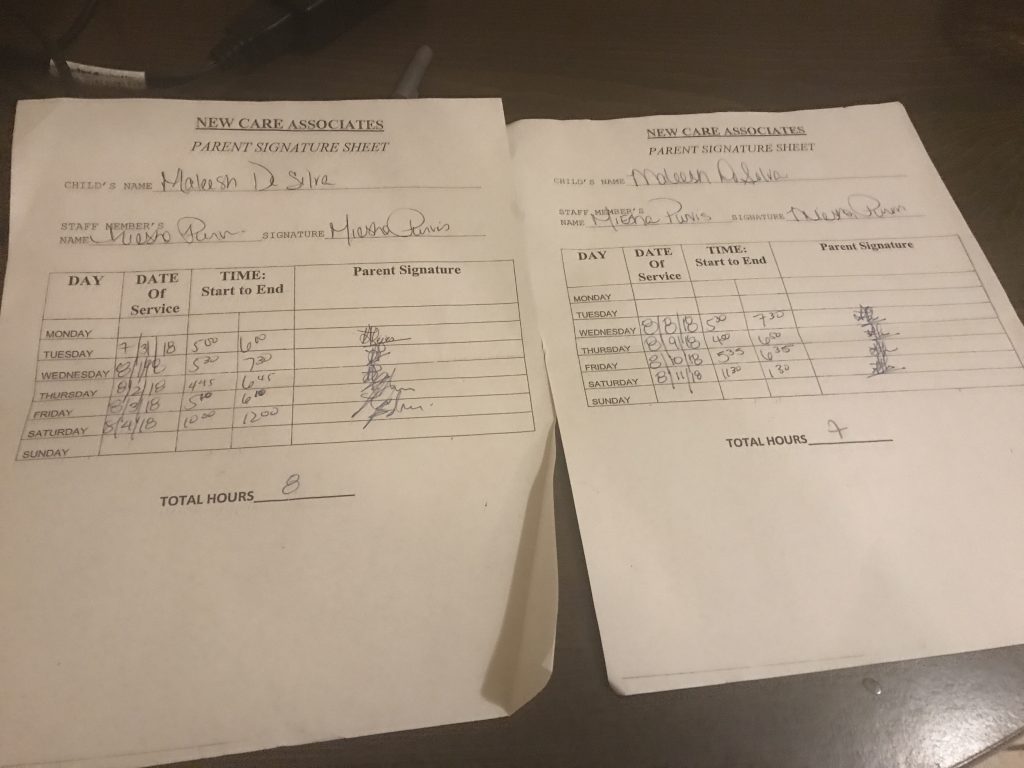 NEW CARE ASSOCIATES
PARENT SIGNATURE SHEET
CHILD'S NAME Maleesh De Silva
STAFF MEMBER'S
NAME Miesha Purvis SIGNATURE Miesha Purvis
DAY DATE Of Service TIME: Start to End Parent Signature
MONDAY
TUESDAY 7/31/18 5:00 6:00
WEDNESDAY 8/1/18 5:30 7:30
THURSDAY 8/2/18 4:45 6:45
FRIDAY 8/3/18 5:10 6:10
SATURDAY 8/4/18 10:00 12:00
SUNDAY
TOTAL HOURS 8
NEW CARE ASSOCIATES
PARENT SIGNATURE SHEET
CHILD'S NAME Maleesh De Silva
STAFF MEMBER'S
NAME Miesha Purvis SIGNATURE Miesha Purvis
DAY DATE Of Service TIME: Start to End Parent Signature
MONDAY
TUESDAY
WEDNESDAY 8/8/18 5:30 7:30
THURSDAY 8/9/18 4:00 6:00
FRIDAY 8/10/18 5:35 6:35
SATURDAY 8/11/18 11:30 1:30
SUNDAY
TOTAL HOURS 7